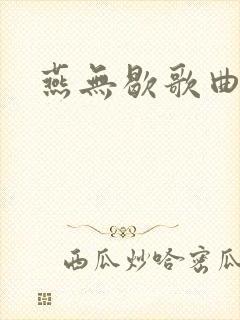 燕無歇歌曲
西瓜炒哈密瓜